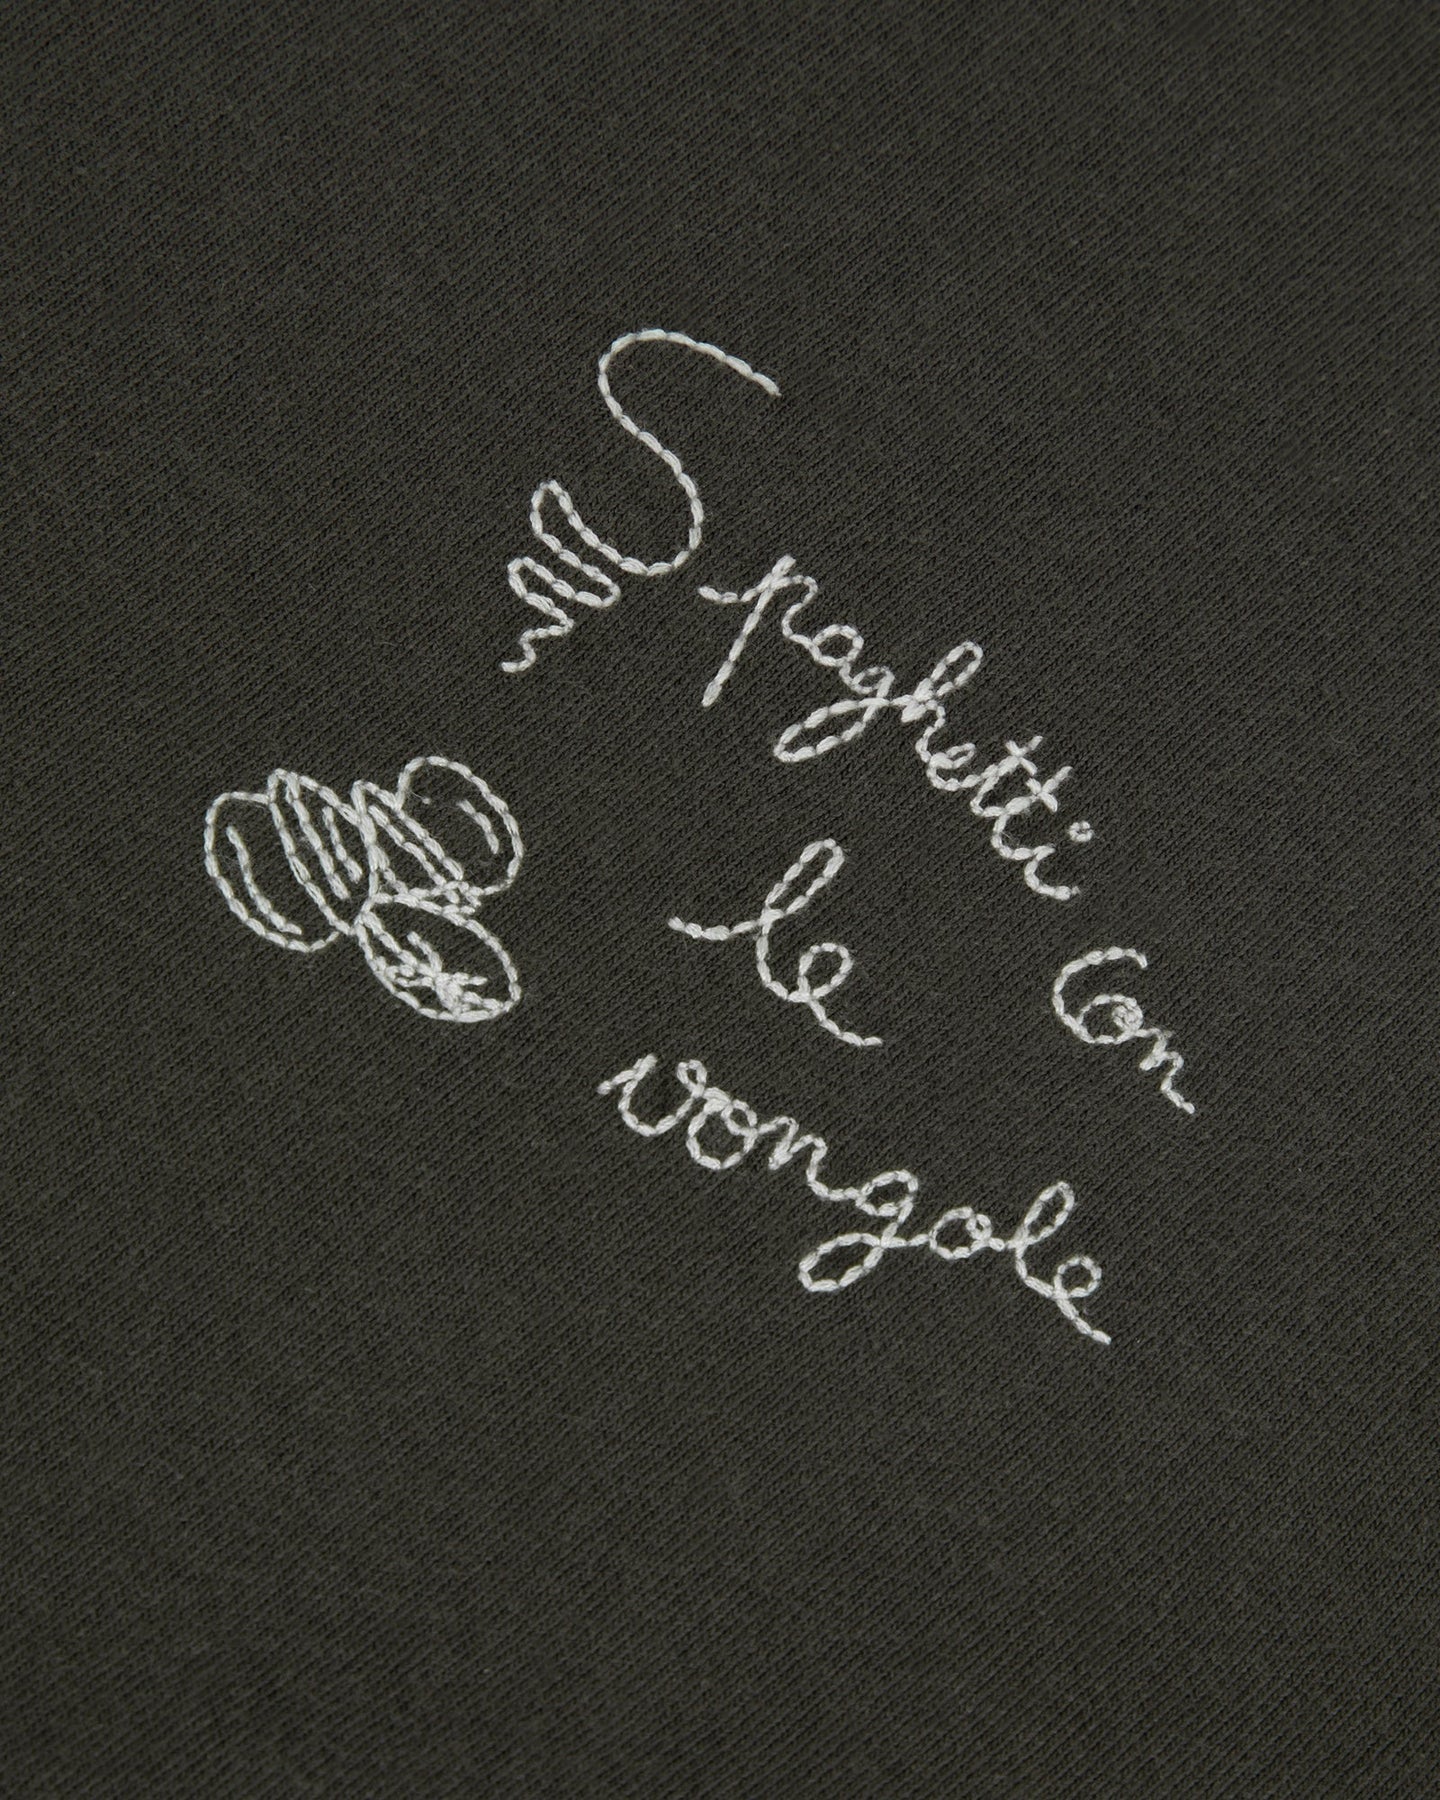 Spaghetti con
le
vongole